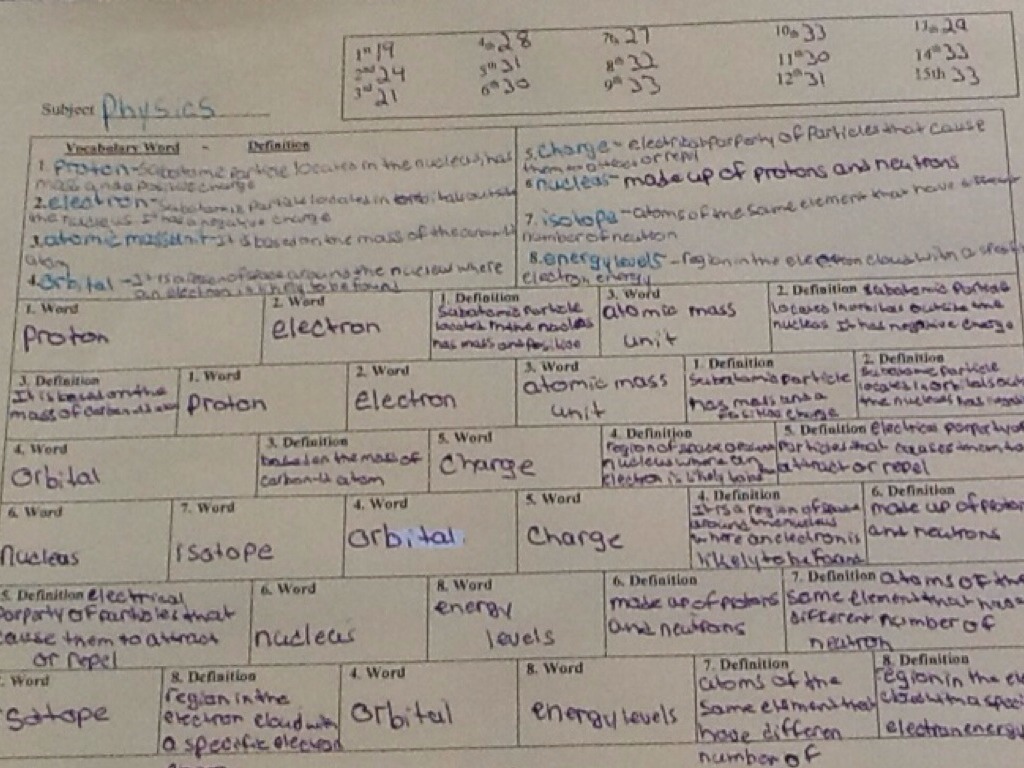 1st 19 4th 28 7th 27 10th 33 13th 29
2nd 24 5th 31 8th 32 11th 30 14th 33
3rd 21 6th 30 9th 33 12th 31 15th 33
Subject Physics
Vocabulary Word - Definition
1. Proton - Subatomic Particle located in the nucleus has
mass and a positive charge
2. electron - Subatomic Particle locates in orbitals outside
the nucleus It has a negative charge
3. atomic mass unit - It is based on the mass of the
atom
4. Orbital - It is a region of space around the nucleus where
an electron is likely to be found
5. Charge - electrical porperty of Particles that cause
them to attract or repel
6 nucleus - made up of protons and neutrons
7. isotope - atoms of the same element that have different
number of neutron
8. energy levels - region in the electron cloud with a
electron energy
1. Word
Proton
2. Word
electron
1. Definition
Subatomic Particle
located in the nucleus
has mass and positive
3. Word
atomic mass
unit
2. Definition Subatomic Particle
locates in orbitals outside the
nucleus It has negative charge
3. Definition
It is based on the
mass of carbon
1. Word
Proton
2. Word
electron
3. Word
atomic mass
unit
1. Definition
Subatomic Particle
has mass and a
positive charge
2. Definition
Subatomic Particle
locates in orbitals
the nucleus has
4. Word
Orbital
3. Definition
based on the mass of
carbon atom
5. Word
Charge
4. Definition
region of space around
nucleus where an
electron is likely to be
5. Definition Electrical porperty of
Particles that causes them to
attract or repel
6. Word
nucleas
7. Word
isotope
4. Word
Orbital
5. Word
Charge
4. Definition
It is a region of space
around the nucleus
where an electron is
likely to be found
6. Definition
made up of
and neutrons
5. Definition electrical
porperty of particles that
cause them to attract
or repel
6. Word
nucleus
8. Word
energy
levels
6. Definition
made up of protons
and neutrons
7. Definition atoms of the
same element that has
different number of
neutron
Word
sotope
8. Definition
region in the
electron cloud with
a specific electron
4. Word
Orbital
8. Word
energy levels
7. Definition
atoms of the
same element that
have differen
number of
8. Definition
region in the
cloud with a
electron energy